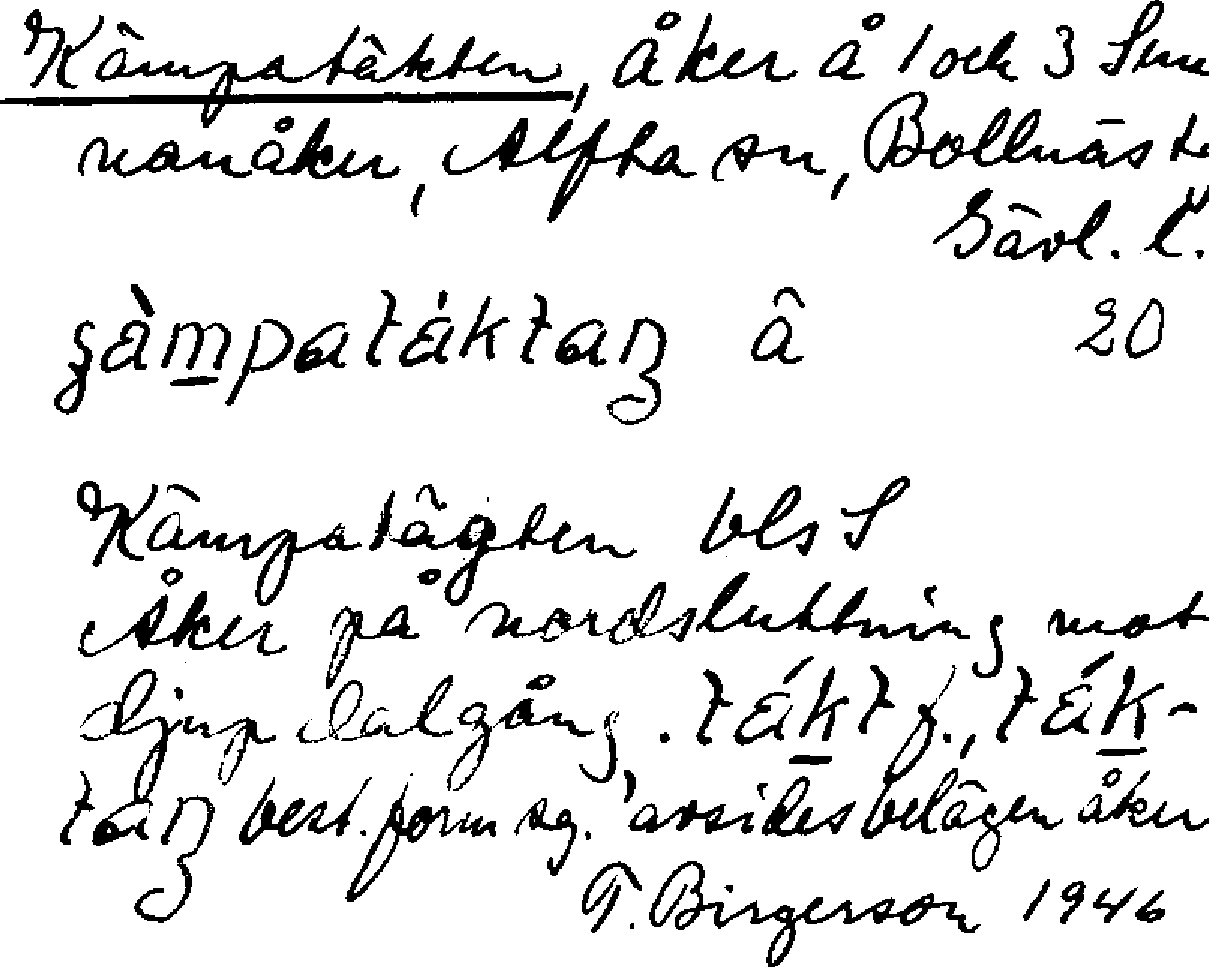 Kämpatäkten, åker å 1 och 3 Sun
nanåker, Alfta sn, Bollnäs t.
Gävl. l.
şàmpatáktaɳ â 20
Kämpatägten bls S
Åker på nordsluttning mot
djup dalgång. tákt f., ták-
taɳ best. form sg. 'avsides belägen åker
T. Birgerson 1946